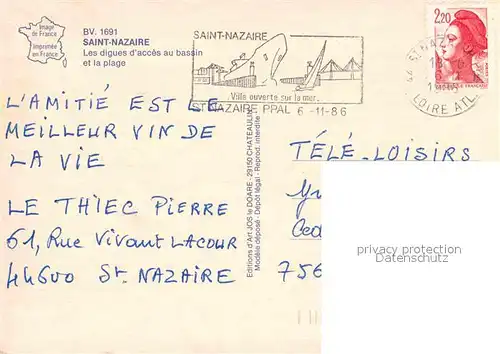 Image
de France
Imprimée
en France
BV. 1691
SAINT-NAZAIRE
Les digues d'accès au bassin
et la plage
SAINT-NAZAIRE
Ville ouverte sur la mer.
ST NAZAIRE PPAL 6 -11-86
2,20
LOIRE ATL
L'AMITIÉ EST LE
MEILLEUR VIN DE
LA VIE
LE THIEC PIERRE
61, Rue Vivant LACOUR
44600 St. NAZAIRE
Editions d'Art JOS le DOARE - 29150 CHATEAULIN
Modèle déposé - Dépôt légal - Reprod. interdite
TÉLÉ-LOISIRS
756
privacy protection
Ansichtskarten-Center.de